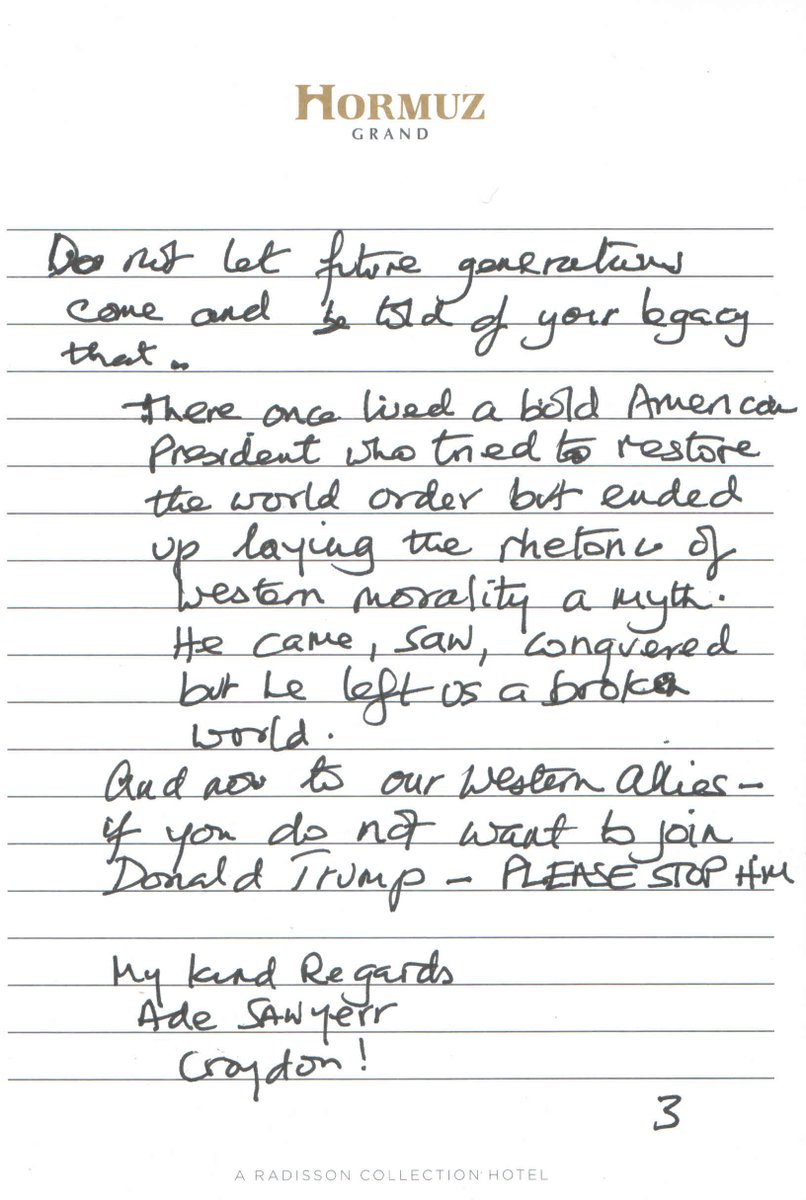 HORMUZ
GRAND
Do not let future generations
come and be told of your legacy
that..
There once lived a bold American
President who tried to restore
the world order but ended
up laying the rhetoric of
Western morality a myth.
He came, saw, conquered
but he left us a broken
world.
And now to our Western Allies –
if you do not want to join
Donald Trump – PLEASE STOP HIM
My kind Regards
Ade Sawyerr
Croydon!
3
A RADISSON COLLECTION HOTEL